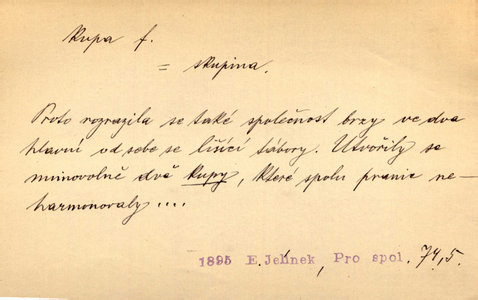 kupa f.
= skupina.
Proto rozrazila se také společnost brzy ve dva
hlavní od sebe se lišící tábory. Utvořily se
mimovolně dvě kupy, které spolu pranic ne-
harmonovaly ....
1895 E. Jelínek, Pro spol. 74,5.